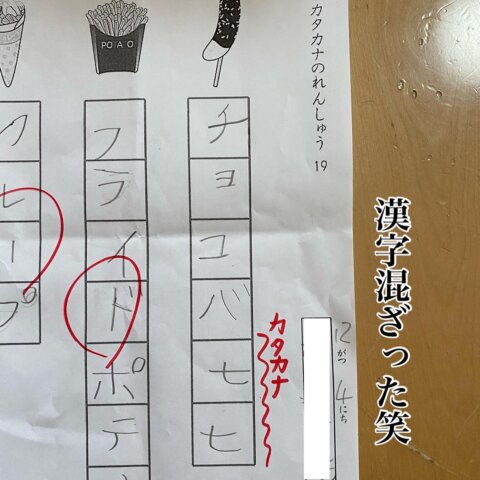 漢字混ざった笑
カタカナのれんしゅう 19
12がつ 4にち
カタカナ
チョコバ七七
POAO
フライドポテ
クレープ